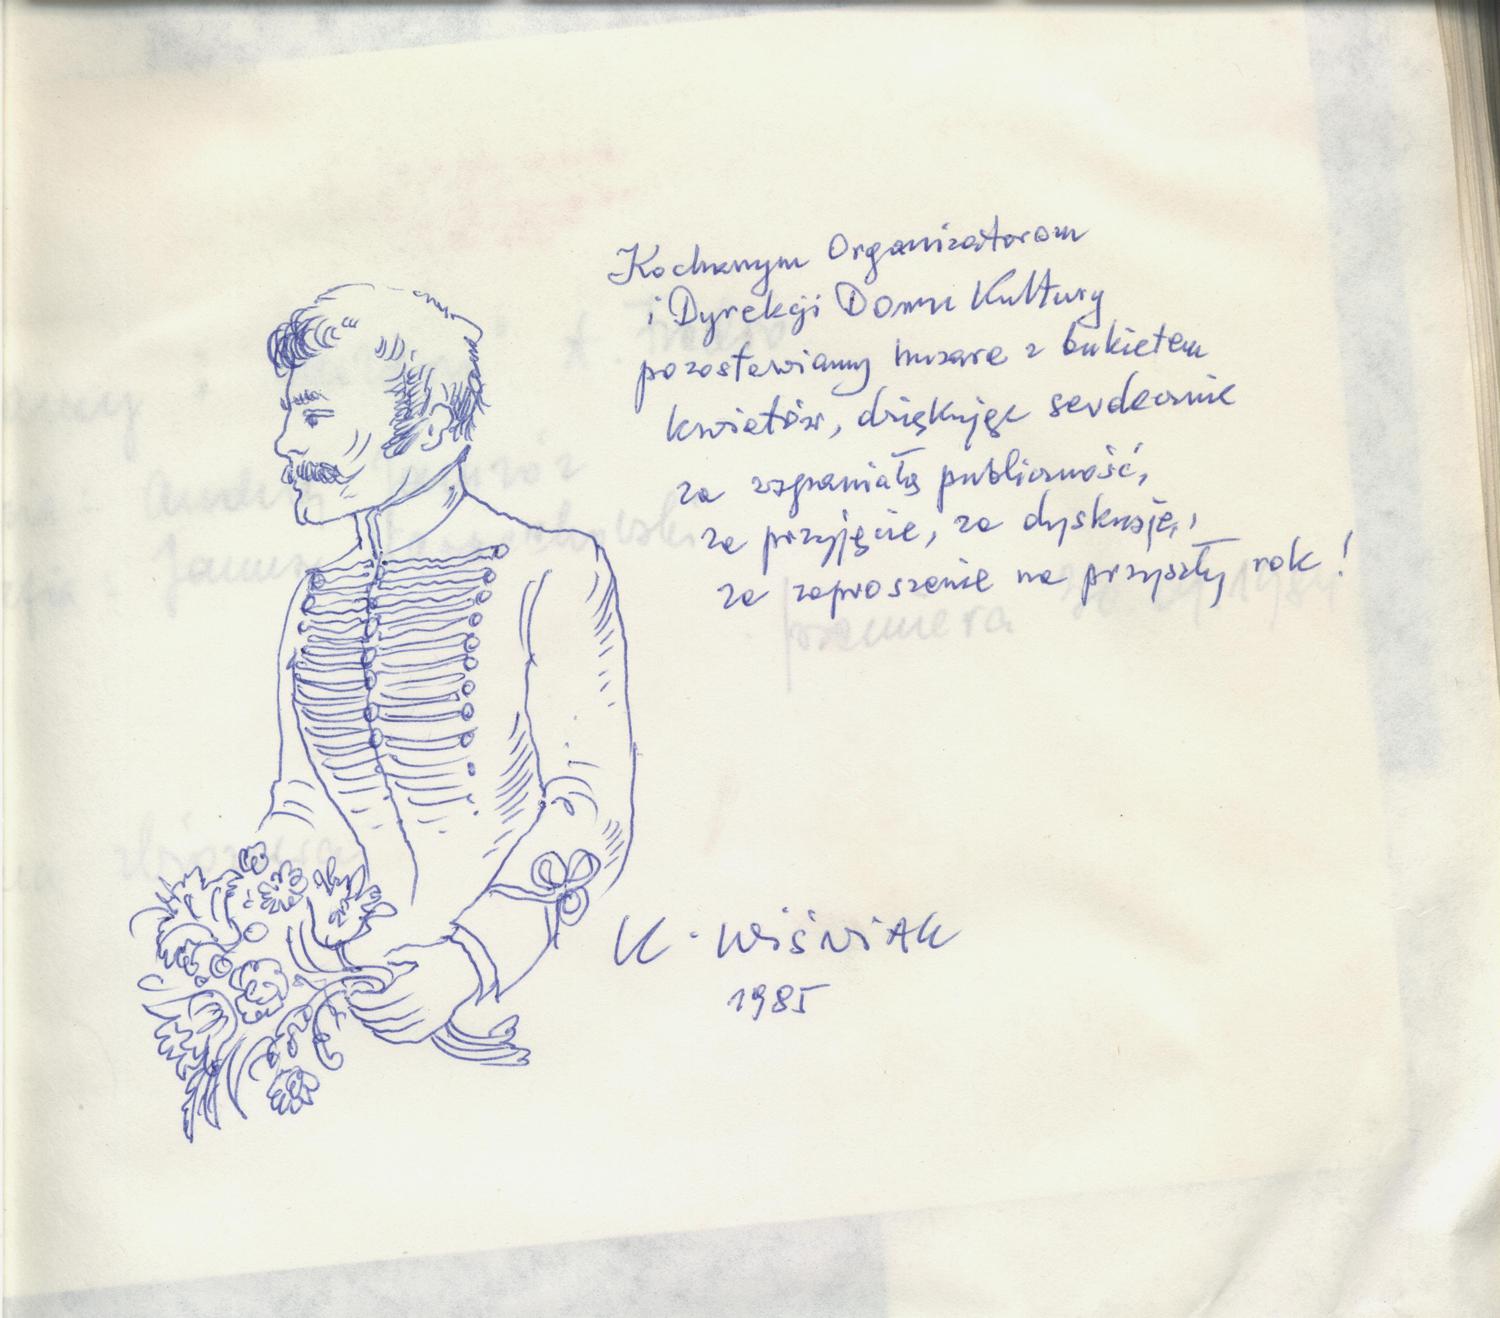 Kochanym Organizatorom
i Dyrekcji Domu Kultury
pozostawiamy huzara z bukietem
kwiatów, dziękując serdecznie
za wspaniałą publiczność,
za przyjęcie, za dyskusję,
za zaproszenie na przyszły rok!
K. WiśNiAK
1985